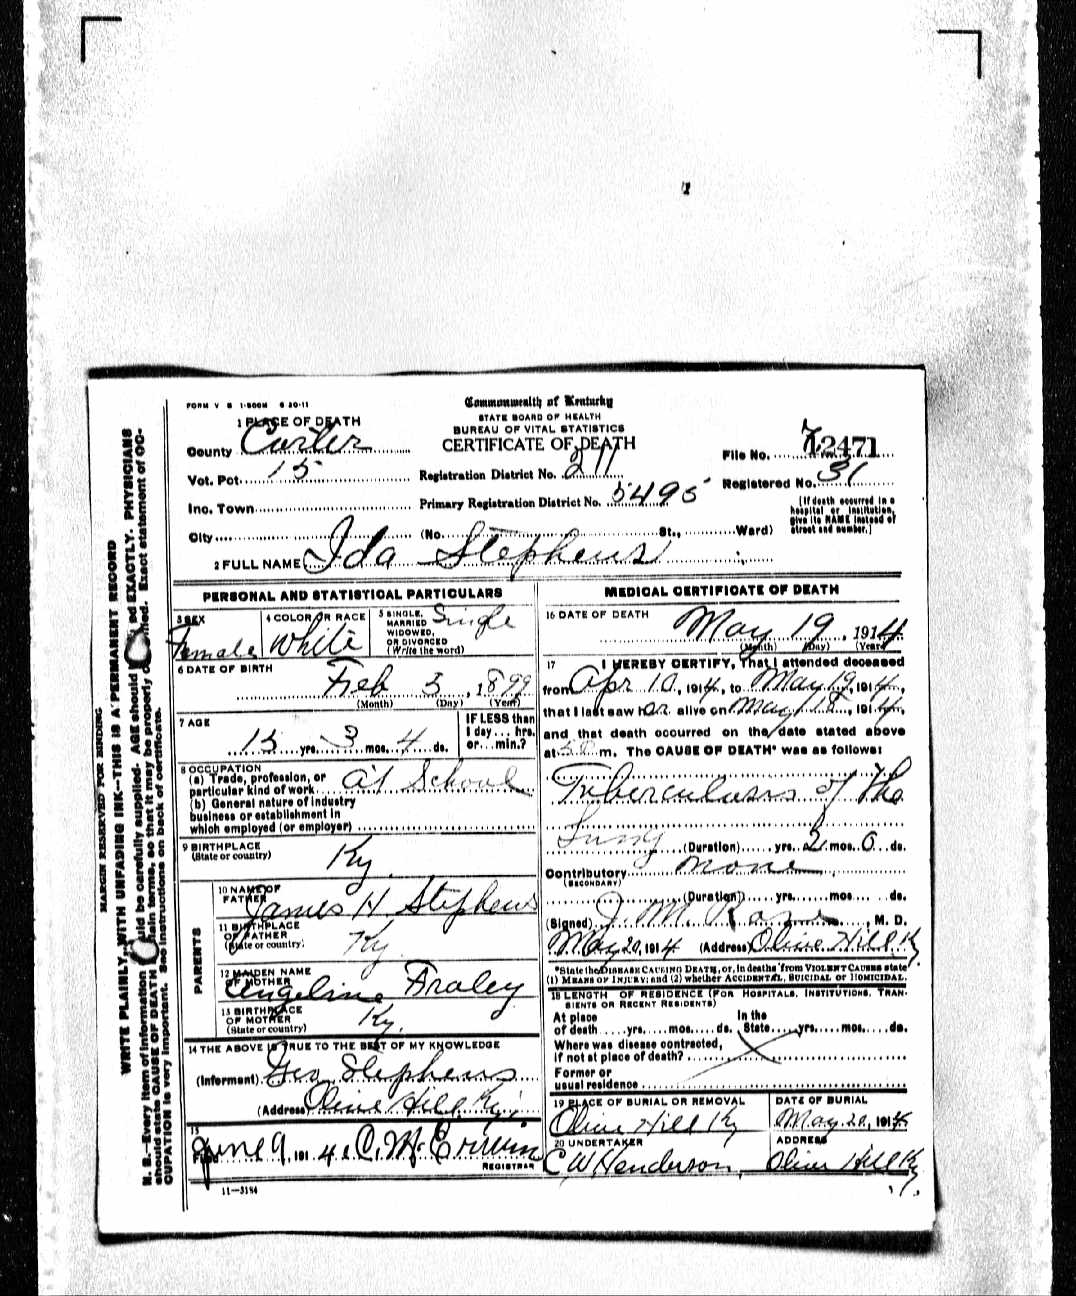 FORM V S 1-500M 6 20-11
Commonwealth of Kentucky
STATE BOARD OF HEALTH
BUREAU OF VITAL STATISTICS
CERTIFICATE OF DEATH
1 PLACE OF DEATH
County Carter
Vot. Pct. 15
Inc. Town
City
Registration District No. 211
Primary Registration District No. 5495
(No. St., Ward)
File No. 12471
Registered No. 31
[If death occurred in a
hospital or institution,
give its NAME instead of
street and number.]
2 FULL NAME Ida Stephens
PERSONAL AND STATISTICAL PARTICULARS
3 SEX
Female
4 COLOR OR RACE
White
5 SINGLE,
MARRIED
WIDOWED,
OR DIVORCED
(Write the word)
Single
6 DATE OF BIRTH
Feb 3, 1899
(Month) (Day) (Year)
7 AGE
15 yrs. 3 mos. 4 ds.
IF LESS than
1 day... hrs.
or... min.?
8 OCCUPATION
(a) Trade, profession, or
particular kind of work At School
(b) General nature of industry
business or establishment in
which employed (or employer)
9 BIRTHPLACE
(State or country)
Ky.
PARENTS
10 NAME OF
FATHER
James H Stephens
11 BIRTHPLACE
OF FATHER
(State or country)
Ky.
12 MAIDEN NAME
OF MOTHER
Angeline Fraley
13 BIRTHPLACE
OF MOTHER
(State or country)
Ky.
14 THE ABOVE IS TRUE TO THE BEST OF MY KNOWLEDGE
(Informant) Geo Stephens
(Address) Olive Hill Ky.
15
June 9, 191 4
REGISTRAR
11-3184
MEDICAL CERTIFICATE OF DEATH
16 DATE OF DEATH
May 19, 1914
(Month) (Day) (Year)
17 I HEREBY CERTIFY, That I attended deceased
from Apr 10, 1914, to May 19, 1914,
that I last saw her alive on May 18, 1914,
and that death occurred on the date stated above
at m. The CAUSE OF DEATH* was as follows:
Tuberculosis of the
Lung
(Duration) yrs. 2 mos. 0 ds.
Contributory none
(SECONDARY)
(Duration) yrs. mos. ds.
(Signed) J. M. , M. D.
May 20, 1914 (Address) Olive Hill Ky
*State the DISEASE CAUSING DEATH, or, in deaths from VIOLENT CAUSES state
(1) MEANS OF INJURY; and (2) whether ACCIDENTAL, SUICIDAL or HOMICIDAL.
18 LENGTH OF RESIDENCE (FOR HOSPITALS, INSTITUTIONS, TRAN-
SIENTS OR RECENT RESIDENTS)
At place
of death yrs. mos. ds.
In the
State yrs. mos. ds.
Where was disease contracted,
if not at place of death?
Former or
usual residence
19 PLACE OF BURIAL OR REMOVAL
Olive Hill Ky
DATE OF BURIAL
May 20, 1914
20 UNDERTAKER
C W Henderson
ADDRESS
Olive Hill Ky.
MARGIN RESERVED FOR BINDING
WRITE PLAINLY, WITH UNFADING INK—THIS IS A PERMANENT RECORD
N. B.—Every item of information should be carefully supplied. AGE should be stated EXACTLY. PHYSICIANS
should state CAUSE OF DEATH in plain terms, so that it may be properly classified. Exact statement of OC-
CUPATION is very important. See instructions on back of certificate.